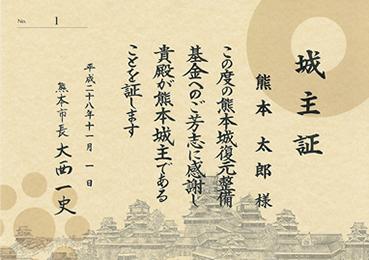 No. 1
城主証
熊本 太郎 様
この度の熊本城復元整備
基金へのご芳志に感謝し
貴殿が熊本城主である
ことを証します
平成二十八年十一月 一日
熊本市長 大西一史